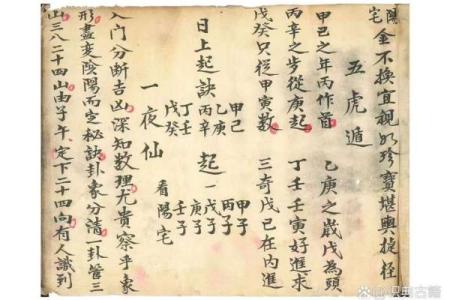 陽宅
金不換宜視如珍寶堪輿捷徑
五虎遁
甲己之年丙作首 乙庚之歲戊為頭
丙辛之步從庚起 丁壬壬寅好進求
戊癸只從甲寅數 三奇戊己在內進
日上起訣
甲己
乙庚
丙辛
丁壬
戊癸
起
甲子
丙子
戊子
庚子
壬子
一夜仙 看陽宅
入門分斷吉凶深知數理尤貴察乎象
形盡變陰陽而定秘訣卦象分清一卦管三
山三八二十四山由子午定下二十四向有人識到